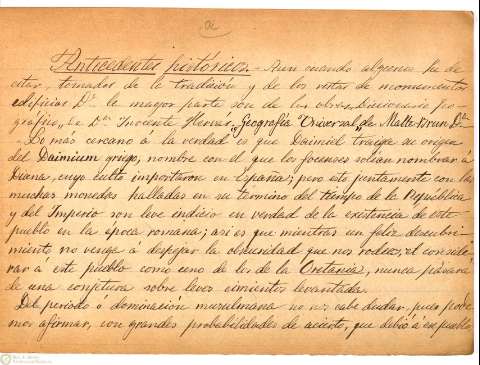 Antecedentes históricos.- Aun cuando algunos he de
citar, tomados de la tradición y de los restos de monumentos
edificios Dª la mayor parte son de las obras Diccionario geo-
gráfico„ de Dn Inocente Hervás, „Geografía Universal„ de Malte-Brun Dª.
Lo más cercano á la verdad es que Daimiel traiga su origen
del Daimium griego, nombre con el que los focenses solían nombrar á
Diana, cuyo culto importaron en España; pero este juntamente con las
muchas monedas halladas en su término del tiempo de la República
y del Imperio son leve indicio en verdad de la existencia de este
pueblo en la época romana; así es que mientras un feliz descubri-
miento no venga á despejar la obscuridad que nos rodea, el conside-
rar á este pueblo como uno de los de la Oretania, nunca pasará
de una conjetura sobre leves cimientos levantada.
Del periodo ó dominación musulmana no nos cabe dudar, pues pode-
mos afirmar, con grandes probabilidades de acierto, que debió á ese pueblo